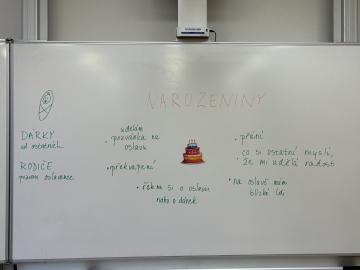 NAROZENINY
DARKY
od ostatních
RODIČE
oslavence
udělám
• pozvánka na
oslavu
• překvapení
• řeknu si o oslavu
nebo o dárek
• přání
• co si ostatní myslí,
že mi udělá radost
• na oslavě mám
blízké lidi